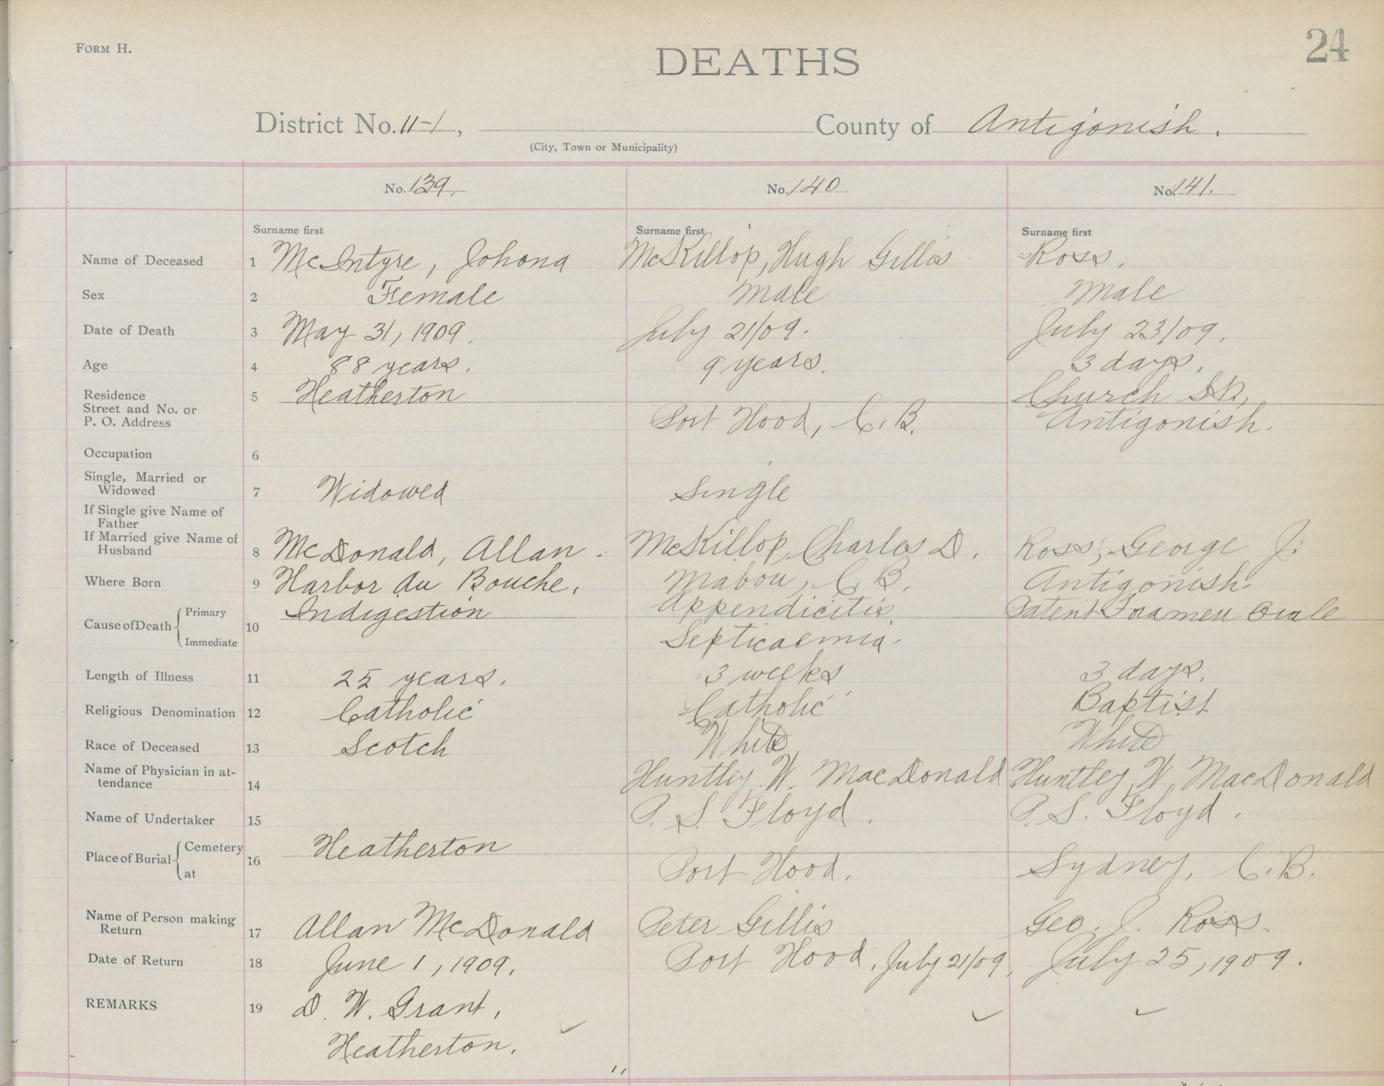 FORM H.
24
DEATHS
District No. 11-1, County of Antigonish.
(City, Town or Municipality)
No. 139. No. 140 No. 141.
Surname first Surname first Surname first
Name of Deceased 1 McIntyre, Johona McKillop, Hugh Gillis Ross.
Sex 2 Female Male Male
Date of Death 3 May 31, 1909. July 21/09. July 23/09.
Age 4 88 years. 9 years. 3 days.
Residence 5 Heatherton Church St.,
Street and No. or
P. O. Address Port Hood, C.B. Antigonish.
Occupation 6
Single, Married or
Widowed 7 Widowed Single
If Single give Name of
Father
If Married give Name of
Husband 8 McDonald, Allan. McKillop, Charles D. Ross, George J.
Where Born 9 Harbor du Bouche. Mabou, C.B. Antigonish.
Cause of Death Primary Indigestion Appendicitis Patent Foramen Ovale
Immediate 10 Septicaemia.
Length of Illness 11 25 years. 3 weeks 3 days.
Religious Denomination 12 Catholic Catholic Baptist
Race of Deceased 13 Scotch White White
Name of Physician in at-
tendance 14 Huntley W. MacDonald Huntley W. MacDonald
Name of Undertaker 15 P. S. Floyd. P. S. Floyd.
Place of Burial Cemetery Heatherton
at 16 Port Hood. Sydney, C.B.
Name of Person making
Return 17 Allan McDonald Peter Gillis Geo. J. Ross.
Date of Return 18 June 1, 1909. Port Hood, July 21/09. July 25, 1909.
REMARKS 19 D. W. Grant,
Heatherton.